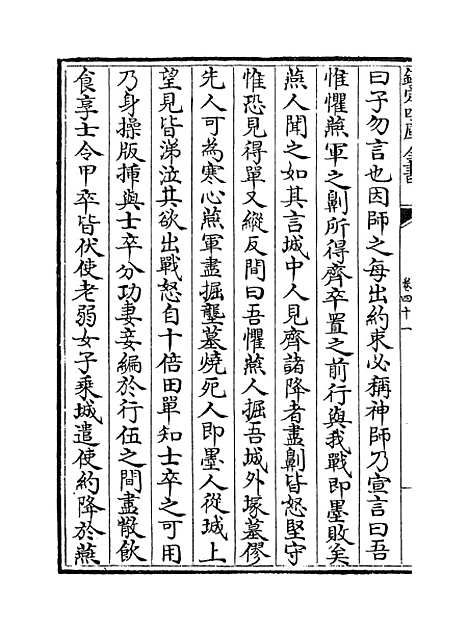 欽定四庫全書
卷四十一
曰子勿言也因師之每出約束必稱神師乃宣言曰吾
惟懼燕軍之劓所得齊卒置之前行與我戰即墨敗矣
燕人聞之如其言城中人見齊諸降者盡劓皆怒堅守
惟恐見得單又縱反間曰吾懼燕人掘吾城外塚墓僇
先人可為寒心燕軍盡掘壟墓燒死人即墨人從城上
望見皆涕泣其欲出戰怒自十倍田單知士卒之可用
乃身操版揷與士卒分功妻妾編於行伍之間盡散飲
食享士令甲卒皆伏使老弱女子乘城遣使約降於燕